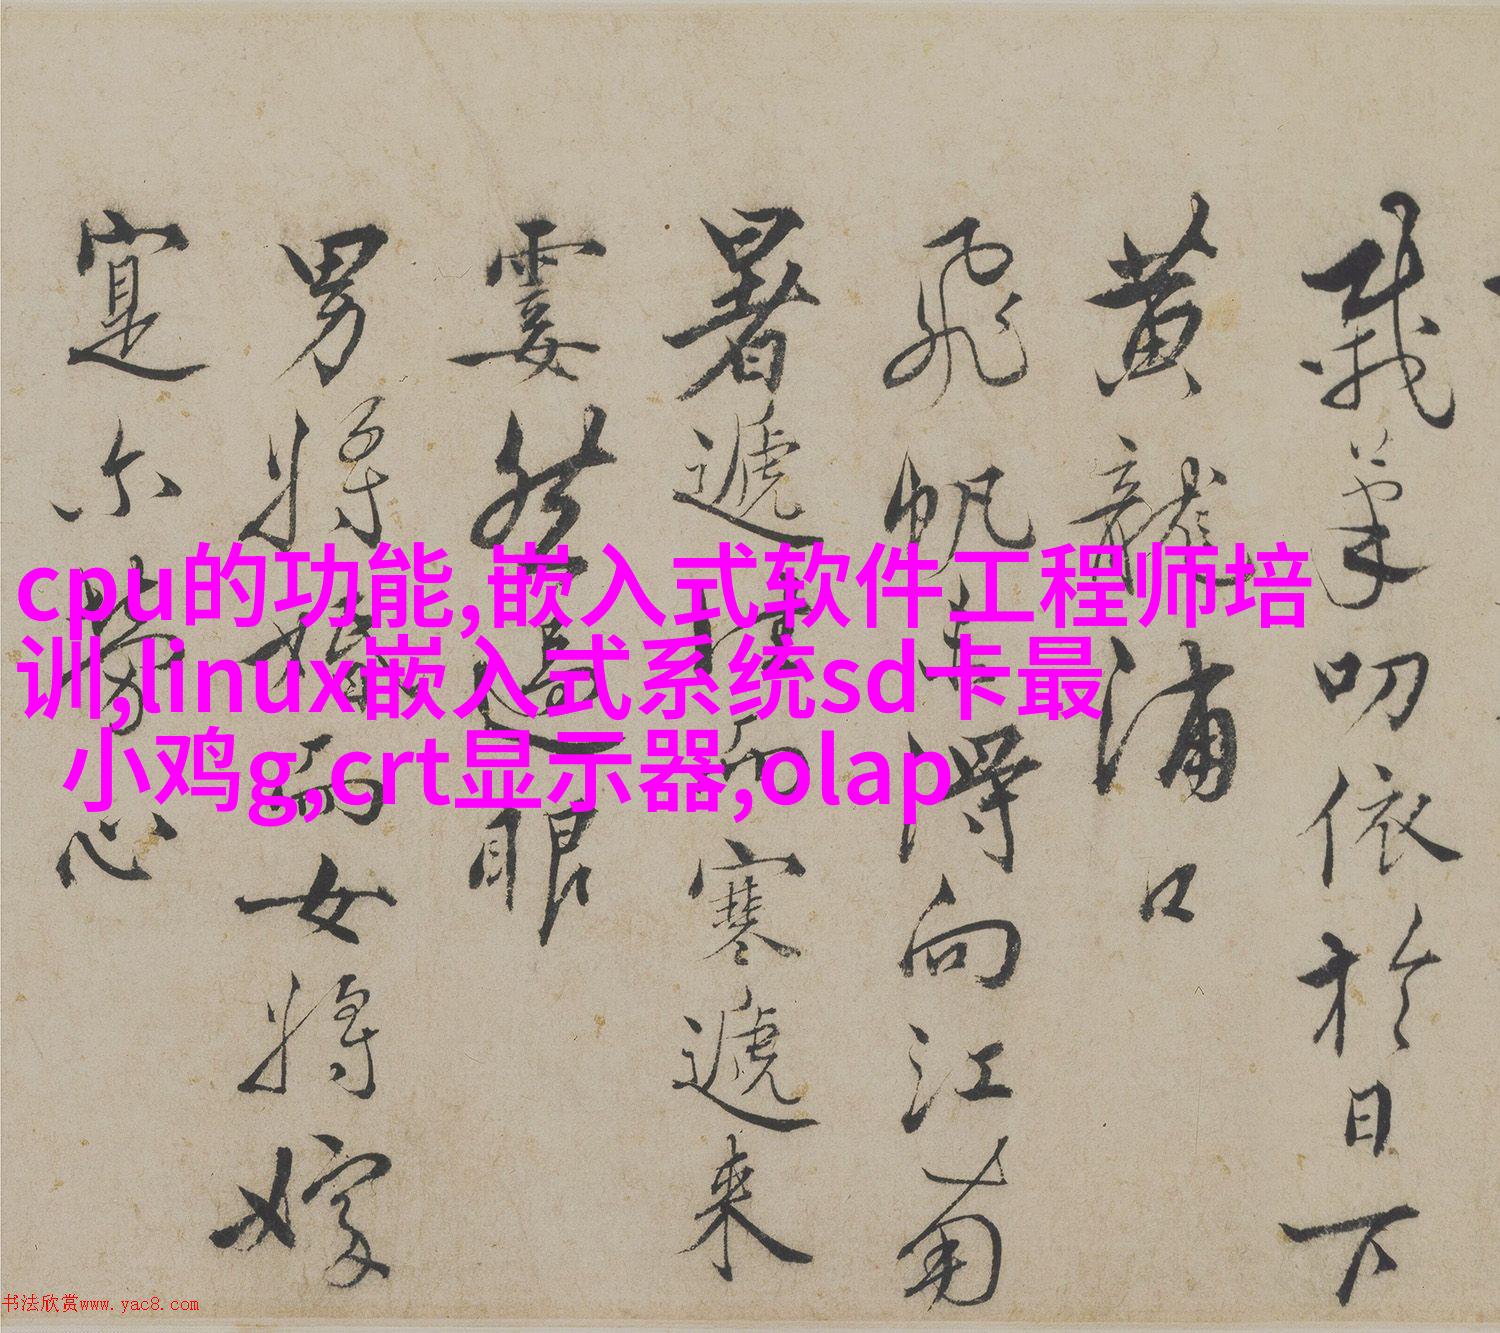 筆叨依於日下
黄龍浦口
飛帆得向江南
暑遞而寒遞来
霎然過眼
男将婚而女将嫁
寔尔劳心
cpu的功能,嵌入式软件工程师培
训,linux嵌入式系统sd卡最
小鸡g,crt显示器,olap
书法欣赏www.yac8.com